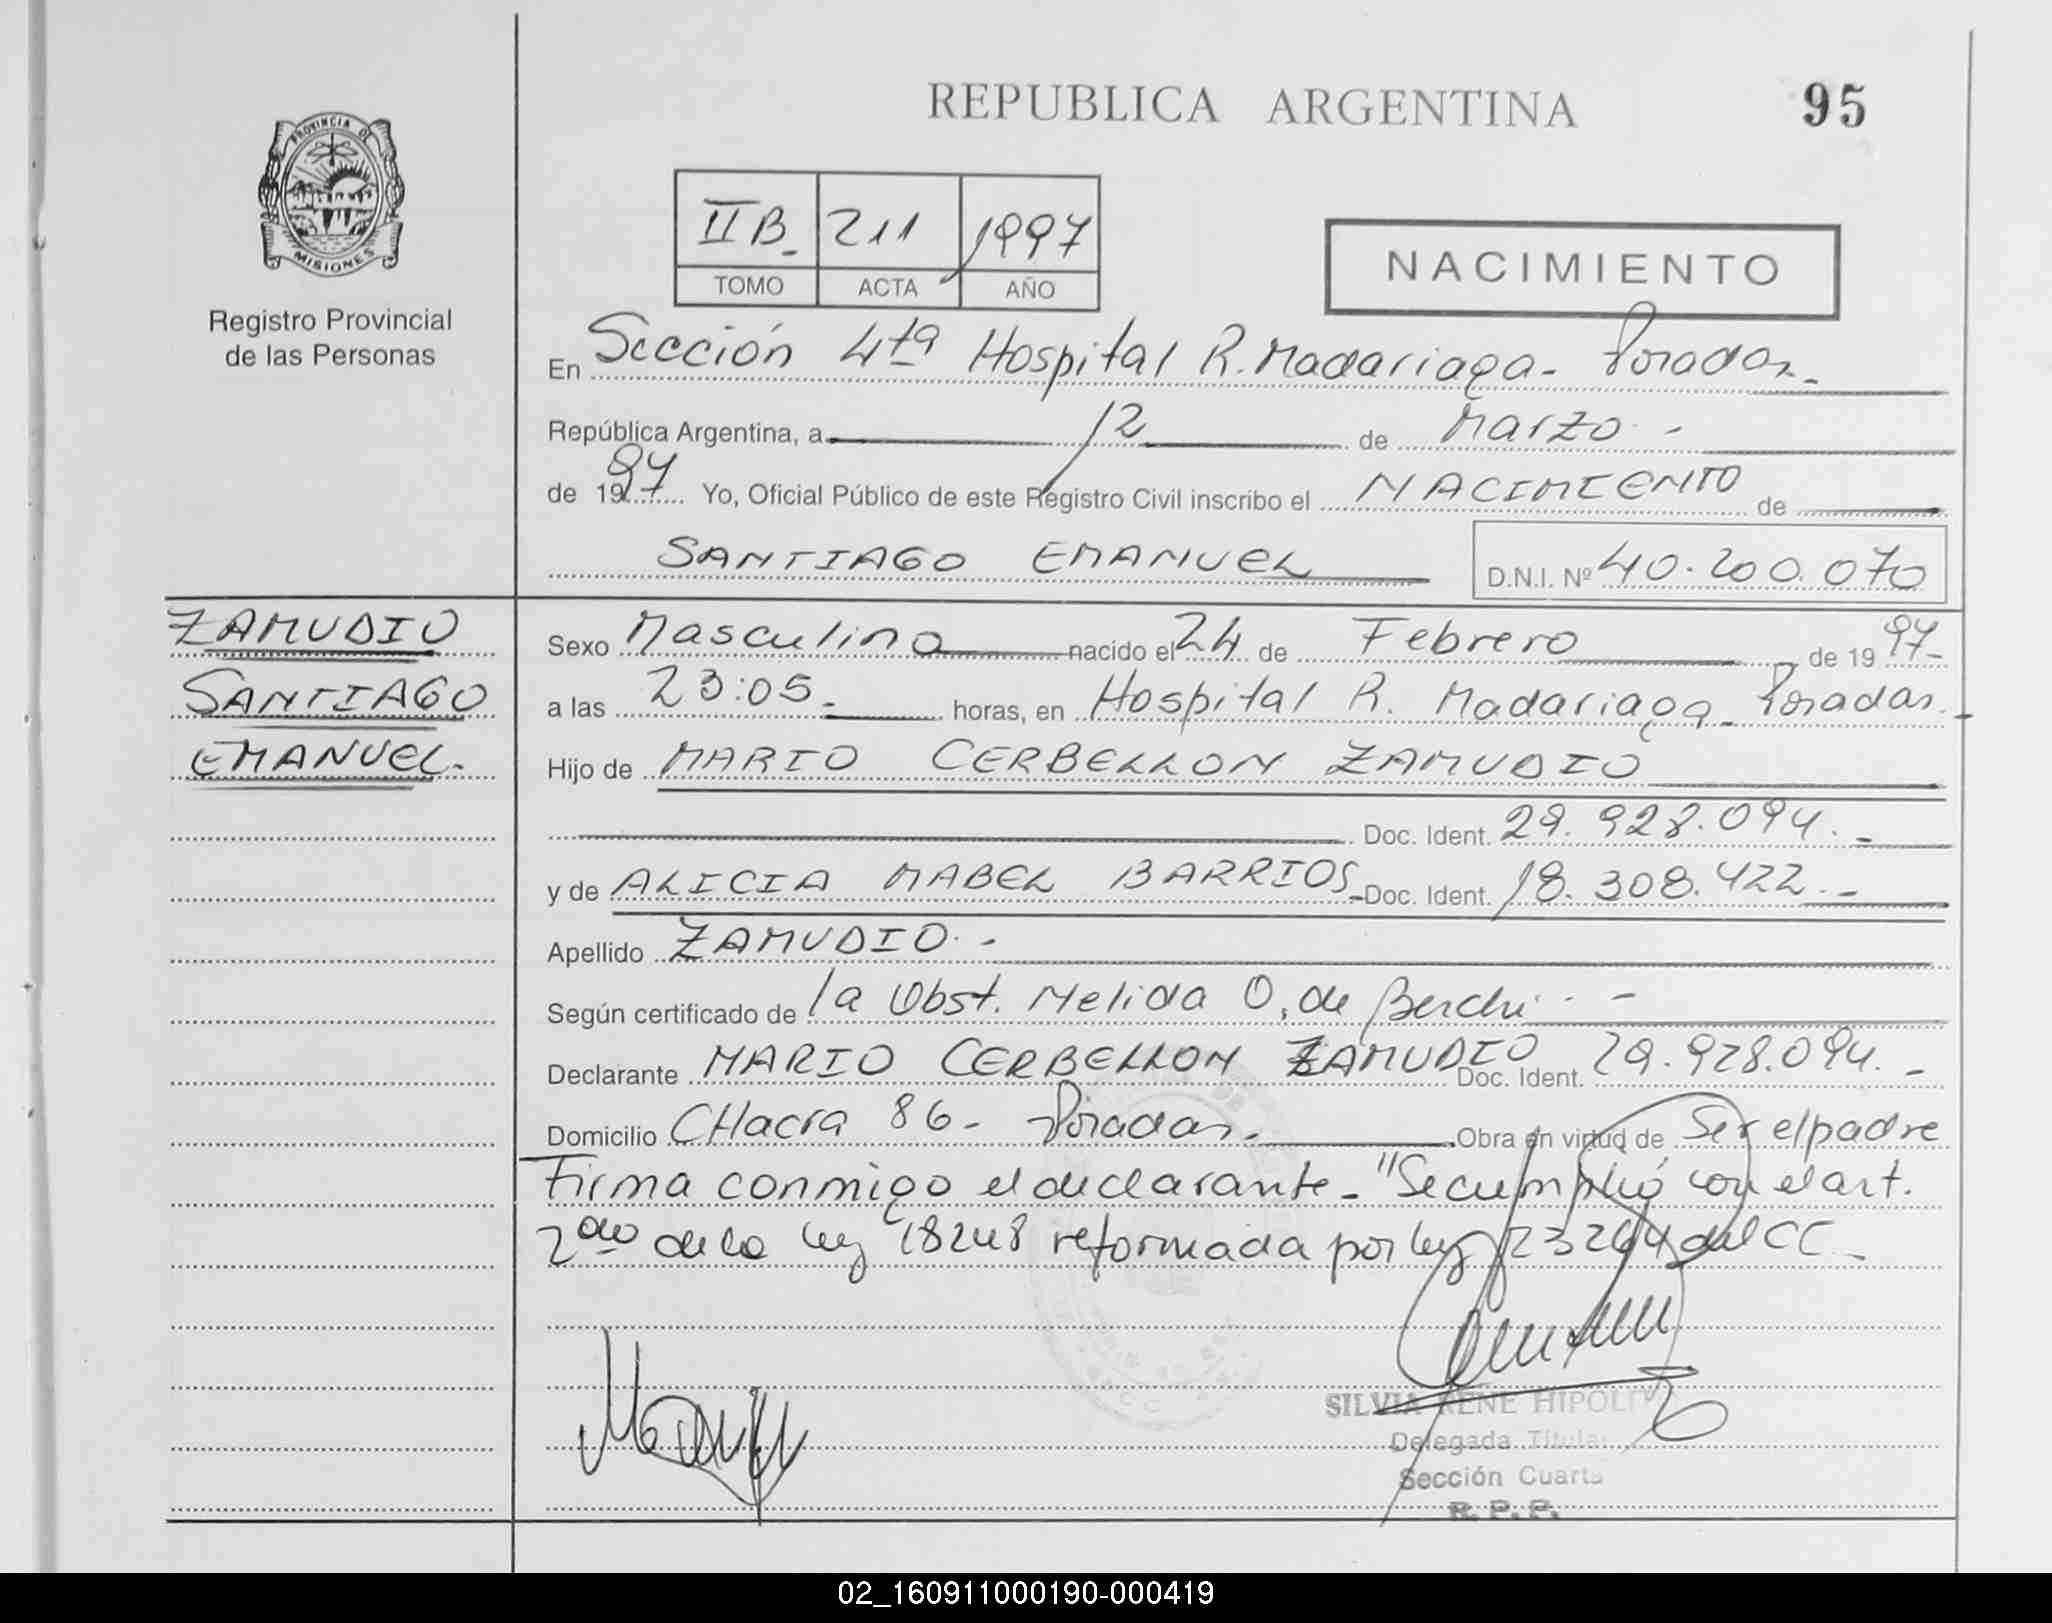 REPUBLICA ARGENTINA
95
PROVINCIA DE
MISIONES
Registro Provincial
de las Personas
II B_ 211 1997
TOMO ACTA AÑO
NACIMIENTO
En Sección 4ta Hospital R. Madariaga - Posadas.-
República Argentina, a 12 de Marzo.-
de 1997 Yo, Oficial Público de este Registro Civil inscribo el NACIMIENTO de
SANTIAGO EMANUEL D.N.I. Nº 40.200.070
ZAMUDIO
SANTIAGO
EMANUEL.
Sexo Masculino nacido el 24 de Febrero de 1997-
a las 23:05.- horas, en Hospital R. Madariaga - Posadas.
Hijo de MARIO CERBELLON ZAMUDIO
Doc. Ident. 29.928.094.-
y de ALICIA MABEL BARRIOS- Doc. Ident. 18.308.422.-
Apellido ZAMUDIO.-
Según certificado de la Obst. Nelida O, de Berchi.-
Declarante MARIO CERBELLON ZAMUDIO Doc. Ident. 29.928.094.-
Domicilio CHacra 86 - Posadas.- Obra en virtud de Ser el padre
Firma conmigo el declarante - "Se cumplió con el art.
2do de la ley 18248 reformada por ley 23264 del CC_
SILVIA RENE HIPOLITO
Delegada Titular
Sección Cuarta
R. P. P.
02_160911000190-000419